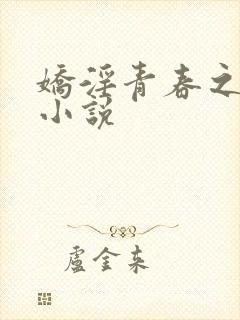 嬌淫青春之
小説
盧金来